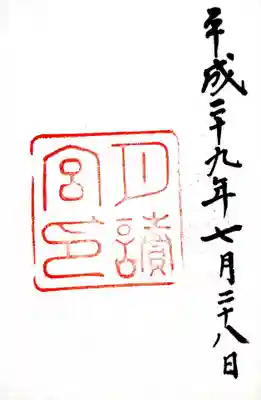 平成二十九年七月二十八日
月讀
宮印